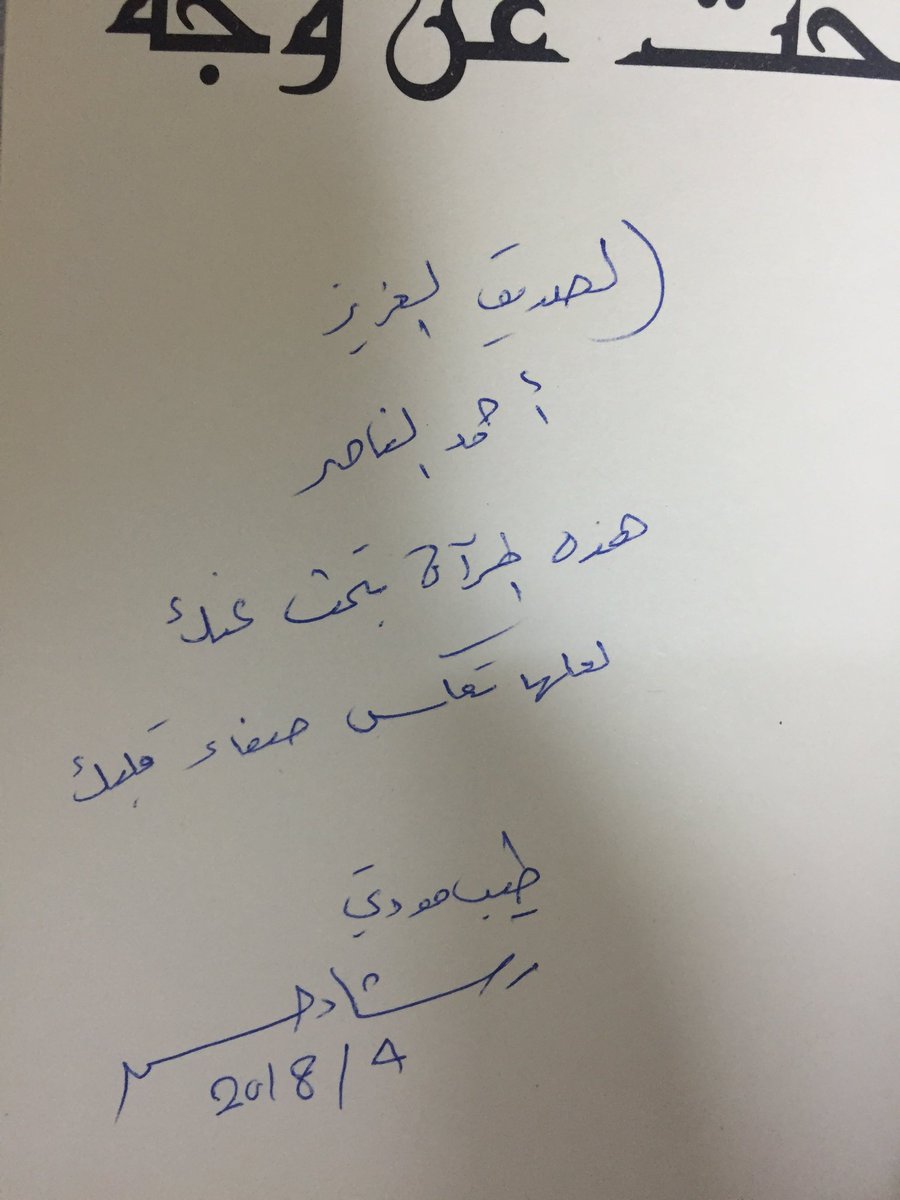 حث عن وجه
الصديق العزيز
أحمد الناصر
هذه المرآة تبحث عنك
لعلها تعكس صفاء قلبك
طيب مودتي
رشاد حسن
2018/4